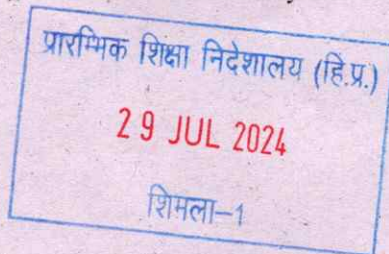 प्रारम्भिक शिक्षा निदेशालय (हि.प्र.)
29 JUL 2024
शिमला-1